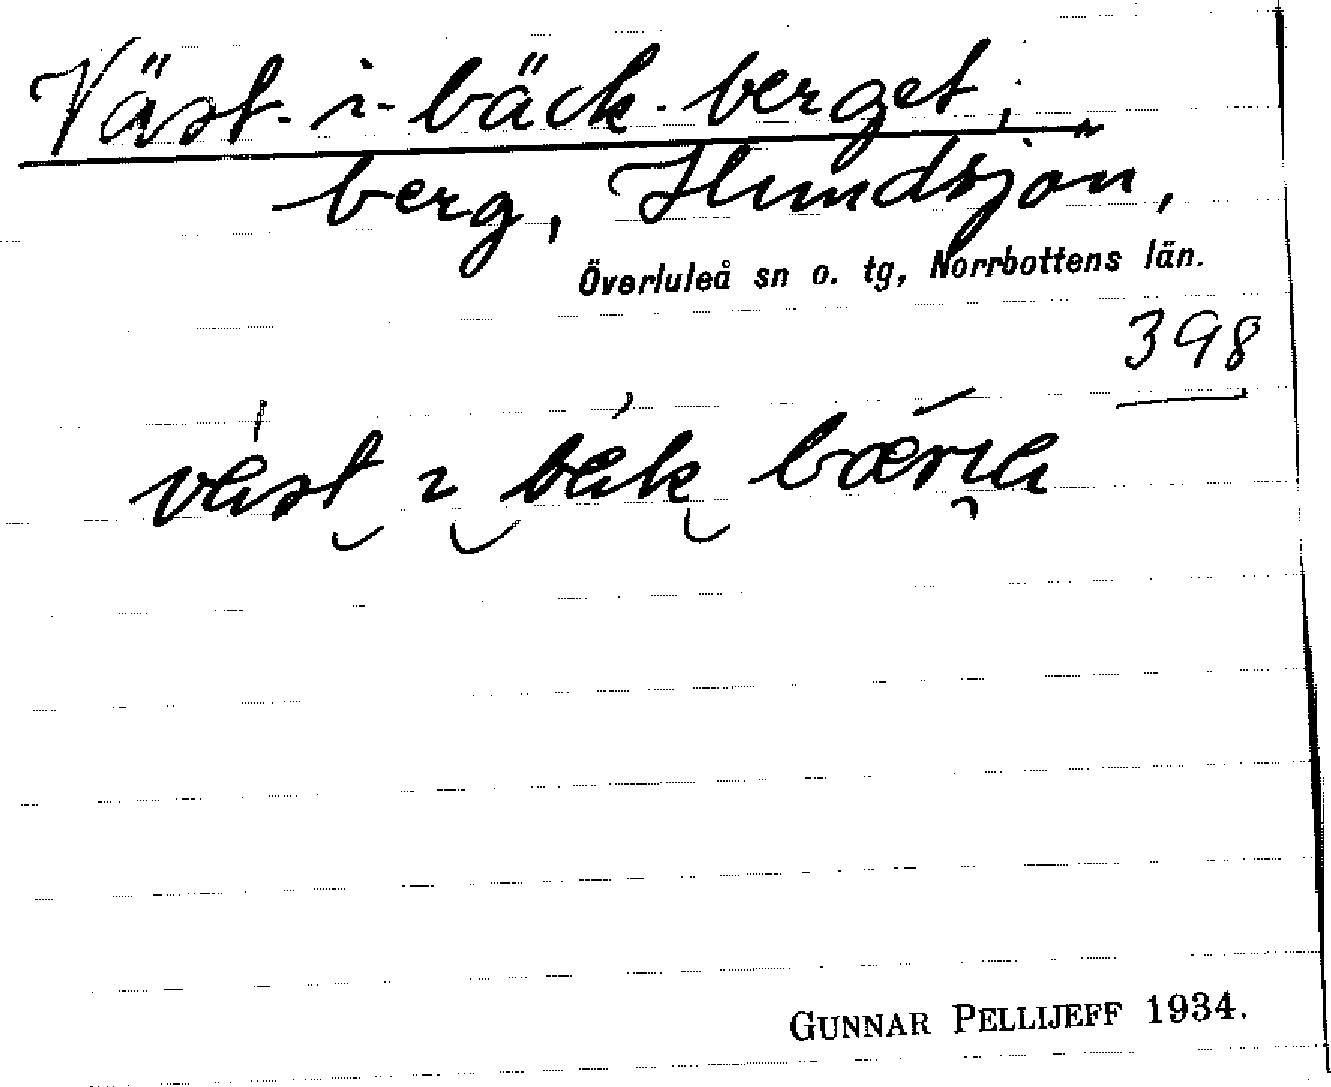 Väst-i-bäck-berget;
berg, Hundsjön,
Överluleå sn o. tg, Norrbottens län.
398
väst i bäk bærɟa
GUNNAR PELLIJEFF 1934.